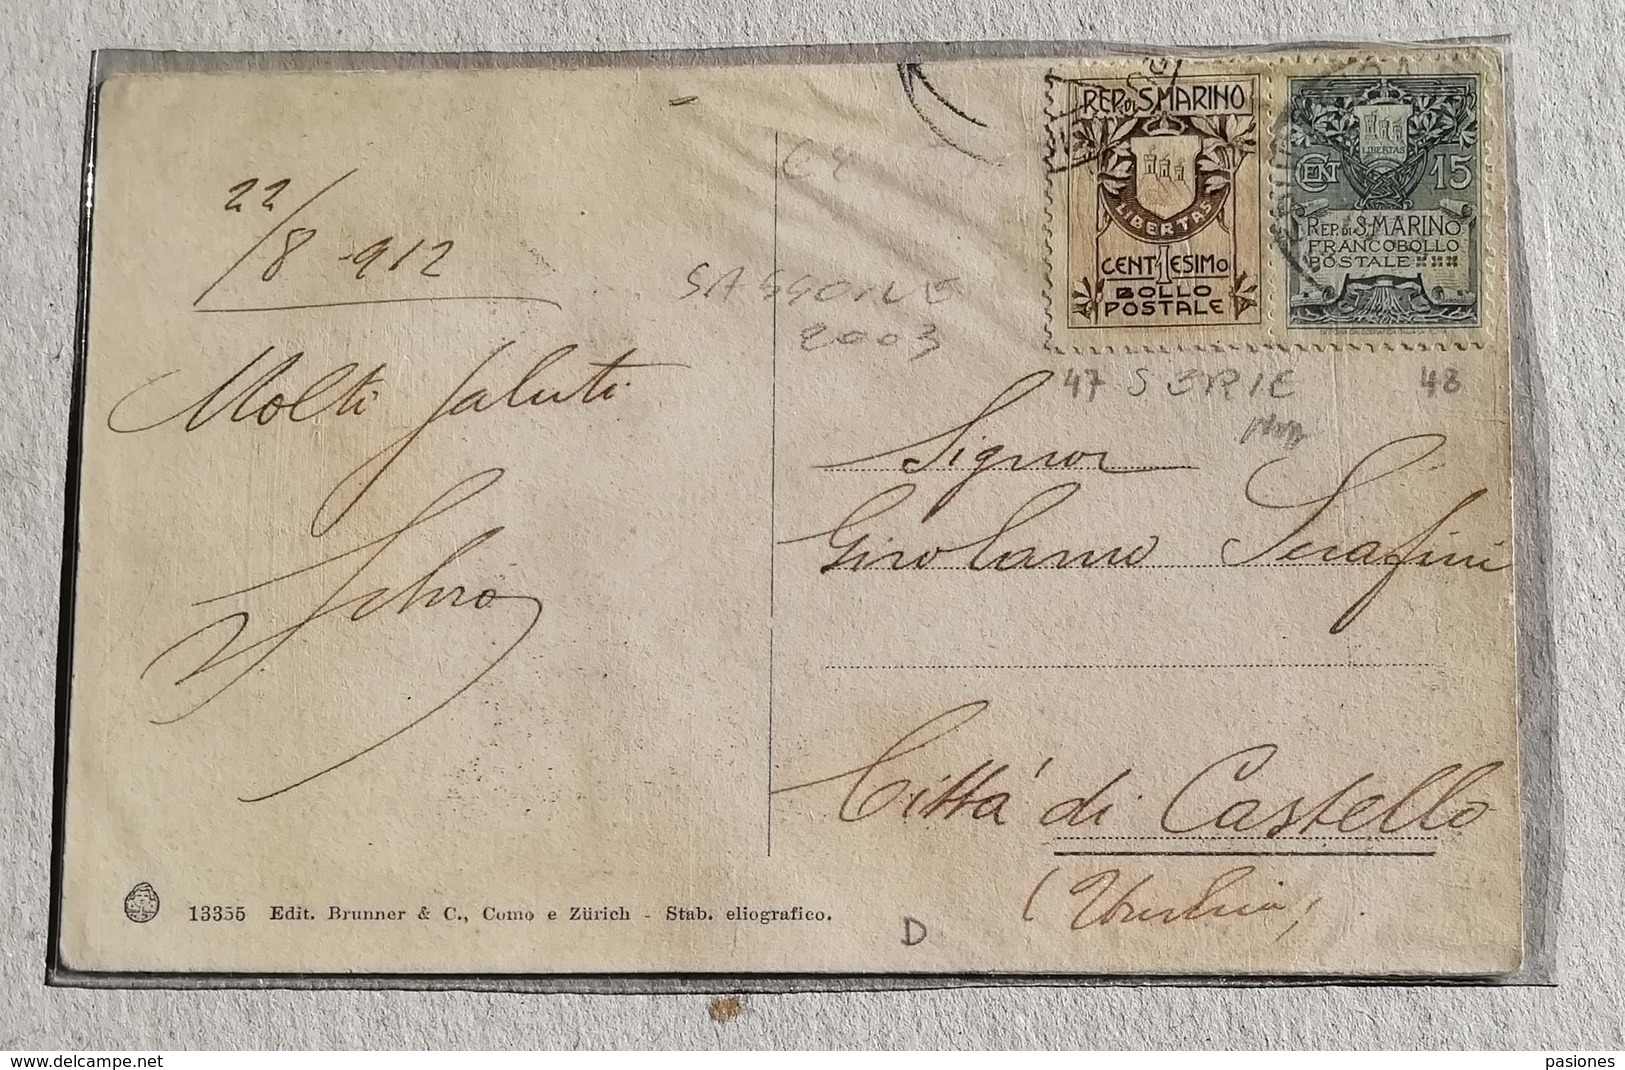 REP. DI S. MARINO
LIBERTAS
CENT 1 ESIMO
BOLLO
POSTALE
LIBERTAS
CENT 15
REP. DI S. MARINO
FRANCOBOLLO
POSTALE
C4
22/8 912
SASSONE
2003
47 SERIE 48
Molti saluti
Signor
Girolamo Serafini
Città di Castello
(Umbria)
13355 Edit. Brunner & C., Como e Zürich - Stab. eliografico.
D
delcampe.net
pasiones